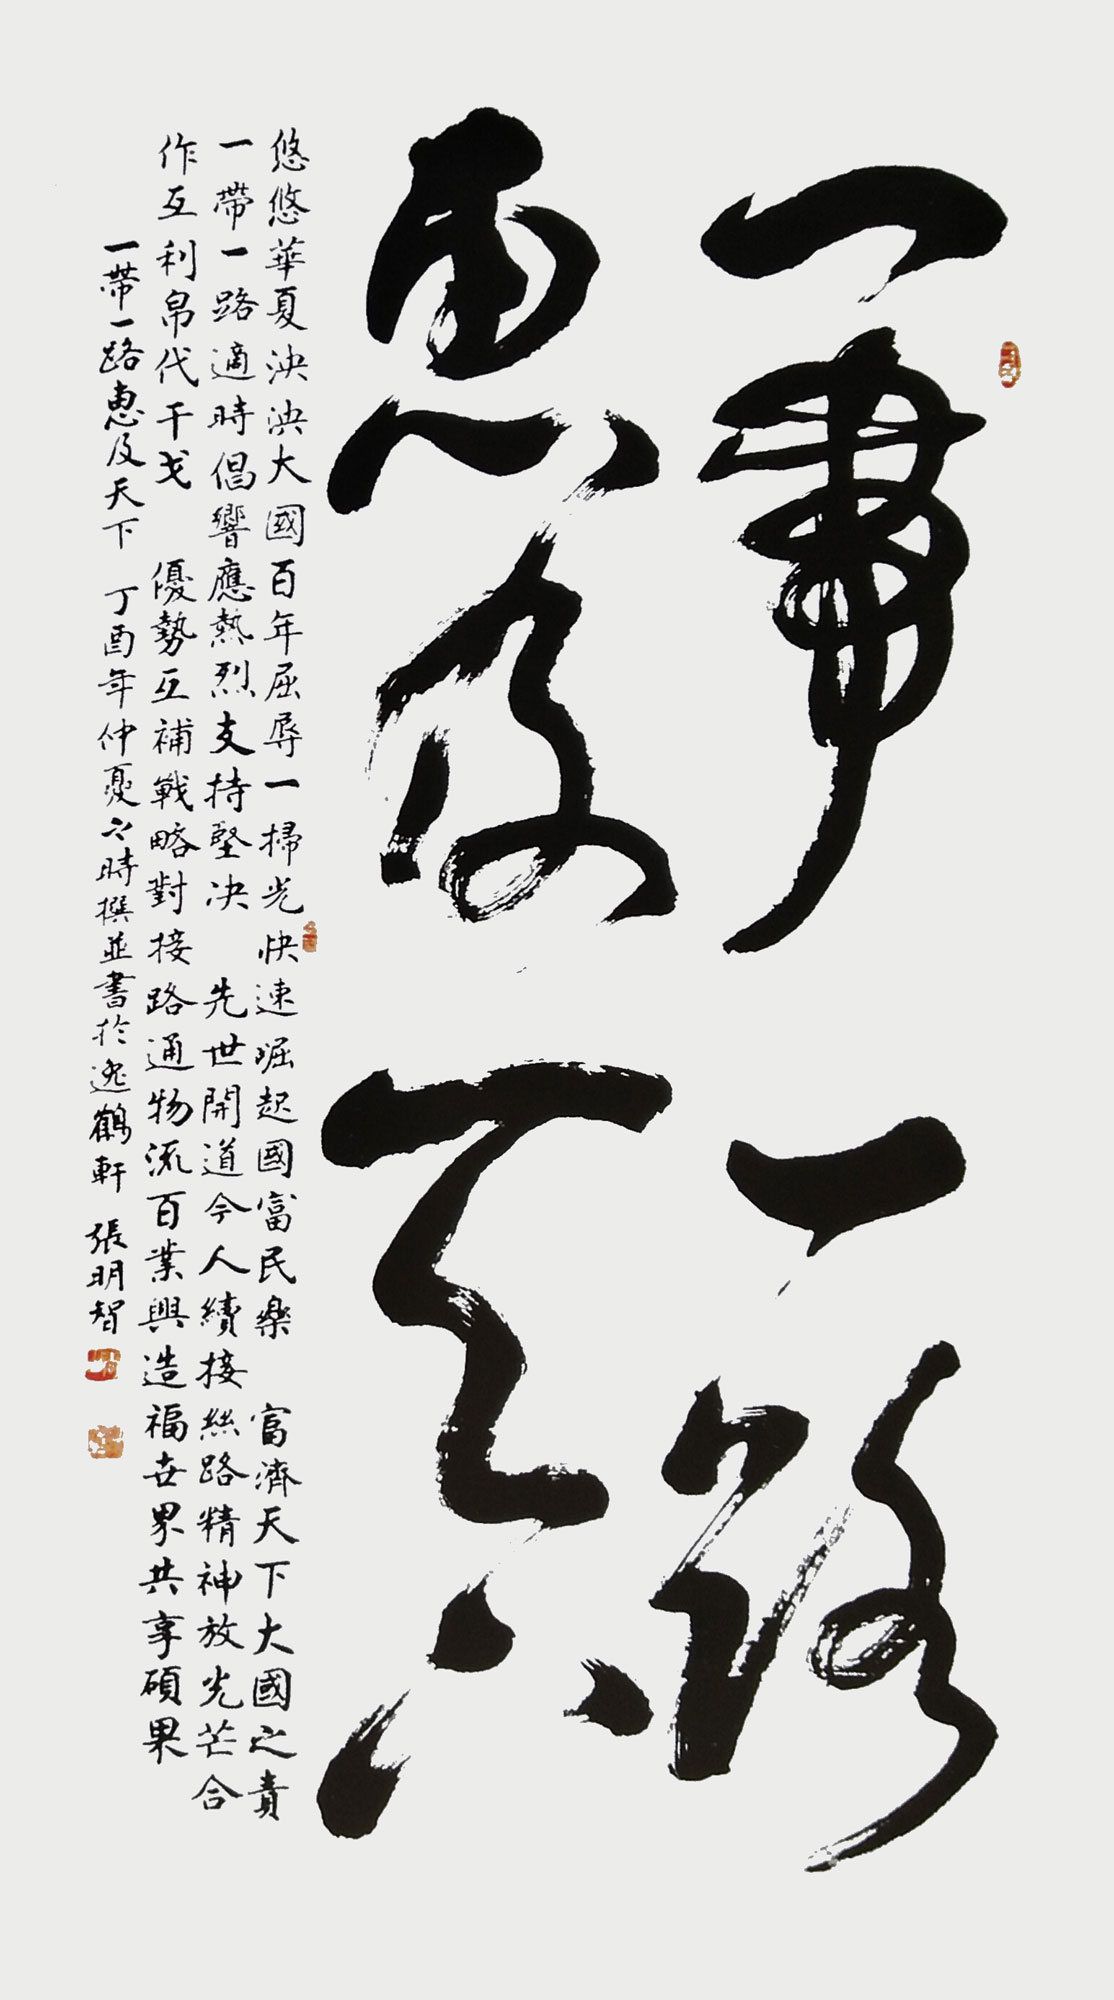 一帶一路
惠及天下
悠悠華夏泱泱大國百年屈辱一掃光快速崛起國富民樂 富濟天下大國之責
一帶一路適時倡響應熱烈支持堅决 先世開道今人續接絲路精神放光芒合
作互利帛代干戈 優勢互補戰略對接路通物流百業興造福世界共享碩果
一帶一路惠及天下 丁酉年仲夏六時撰並書於逸鶴軒 張明智